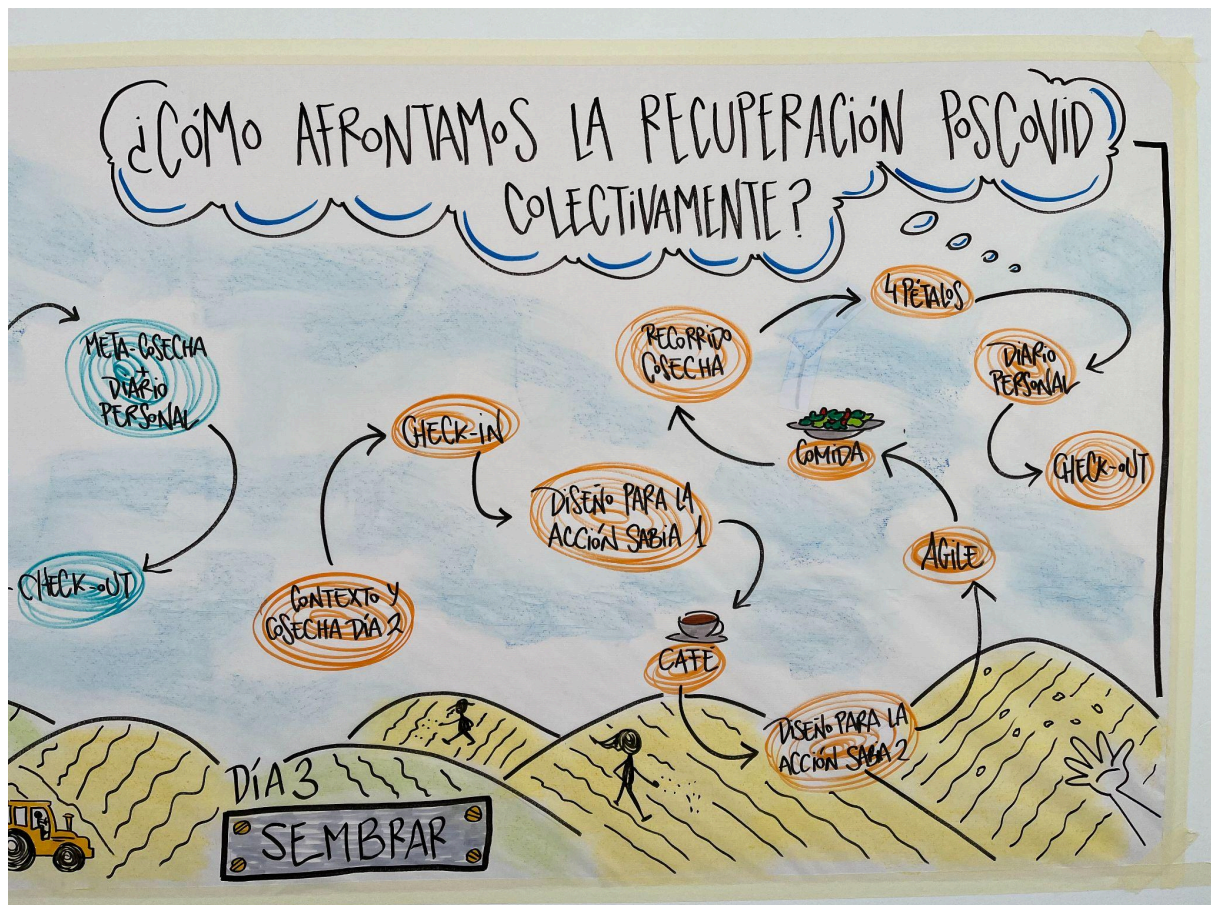 ¿CÓMO AFRONTAMOS LA RECUPERACIÓN POSCOVID
COLECTIVAMENTE?
META-COSECHA
+
DIARIO
PERSONAL
CHECK-OUT
CONTEXTO Y
COSECHA DÍA 2
CHECK-IN
DISEÑO PARA LA
ACCIÓN SABIA 1
CAFÉ
DISEÑO PARA LA
ACCIÓN SABIA 2
AGILE
COMIDA
RECORRIDO
COSECHA
4 PÉTALOS
DIARIO
PERSONAL
CHECK-OUT
DÍA 3
SEMBRAR